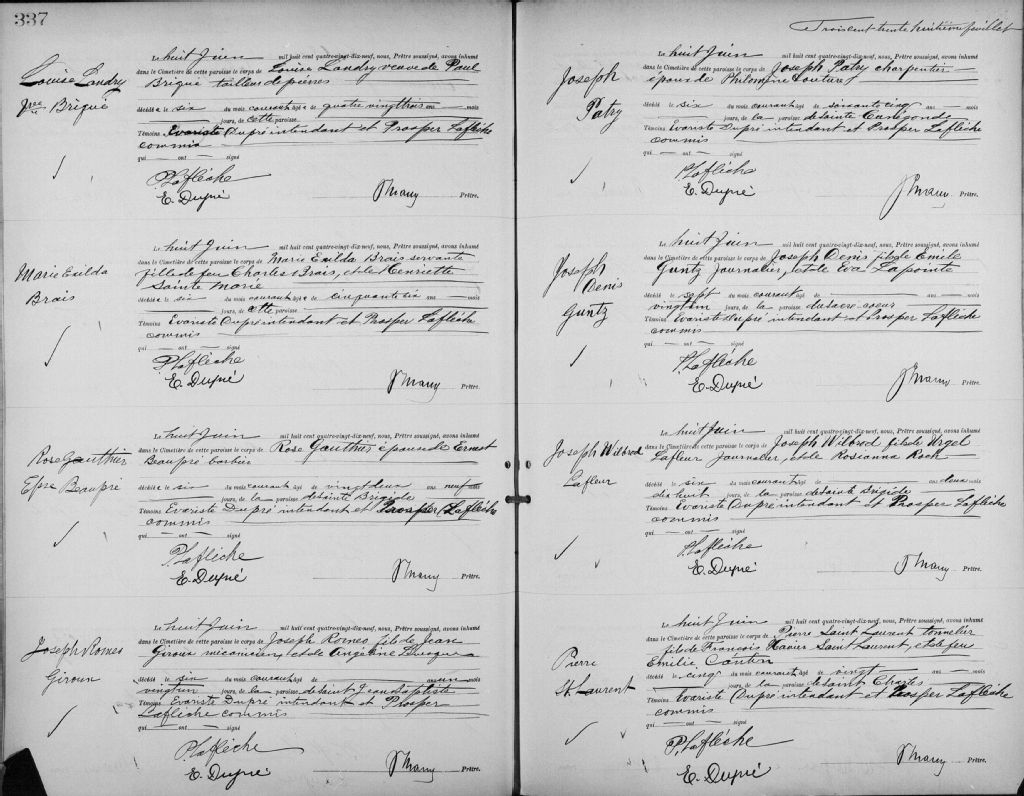 337
Louise Landry
Vve Brique
Le huit Juin mil huit cent quatre-vingt-dix-neuf, nous, Prêtre soussigné, avons inhumé
dans le Cimetière de cette paroisse le corps de Louise Landry veuve de Paul
Brique tailleur de pierres
décédée le six du mois courant âgée de quatre vingt trois ans — mois
— jours, de cette paroisse
Témoins Evariste Dupré intendant et Prosper Laflèche
commis
qui — ont — signé
P. Laflèche
E. Dupré
Prêtre.
Marie Exilda
Brais
Le huit Juin mil huit cent quatre-vingt-dix-neuf, nous, Prêtre soussigné, avons inhumé
dans le Cimetière de cette paroisse le corps de Marie Exilda Brais servante
fille de feu Charles Brais, et de Henriette
Sainte Marie
décédée le six du mois courant âgée de cinquante six ans — mois
— jours, de cette paroisse
Témoins Evariste Dupré intendant et Prosper Laflèche
commis
qui — ont — signé
P. Laflèche
E. Dupré
Prêtre.
Rose Gauthier
Epse Beaupré
Le huit Juin mil huit cent quatre-vingt-dix-neuf, nous, Prêtre soussigné, avons inhumé
dans le Cimetière de cette paroisse le corps de Rose Gauthier épouse de Ernest
Beaupré barbier
décédée le six du mois courant âgée de vingt deux ans neuf mois
— jours, de la paroisse de Sainte Brigide
Témoins Evariste Dupré intendant et Prosper Laflèche
commis
qui — ont — signé
P. Laflèche
E. Dupré
Prêtre.
Joseph Romeo
Giroux
Le huit Juin mil huit cent quatre-vingt-dix-neuf, nous, Prêtre soussigné, avons inhumé
dans le Cimetière de cette paroisse le corps de Joseph Romeo fils de Jean
Giroux mécanicien, et de Angéline
décédé le six du mois courant âgé de — ans un mois
vingt un jours, de la paroisse de Saint Jean Baptiste
Témoins Evariste Dupré intendant et Prosper
Laflèche commis
qui — ont — signé
P. Laflèche
E. Dupré
Prêtre.
Trois cent trente huitième feuillet
Joseph
Patry
Le huit Juin mil huit cent quatre-vingt-dix-neuf, nous, Prêtre soussigné, avons inhumé
dans le Cimetière de cette paroisse le corps de Joseph Patry charpentier
époux de Philomène Couture
décédé le six du mois courant âgé de soixante cinq ans — mois
— jours, de la paroisse de Sainte Cunégonde
Témoins Evariste Dupré intendant et Prosper Laflèche
commis
qui — ont — signé
P. Laflèche
E. Dupré
Prêtre.
Joseph
Denis
Guntz
Le huit Juin mil huit cent quatre-vingt-dix-neuf, nous, Prêtre soussigné, avons inhumé
dans le Cimetière de cette paroisse le corps de Joseph Denis fils de Emile
Guntz journalier, et de Eva Lapointe
décédé le sept du mois courant âgé de — ans — mois
vingt un jours, de la paroisse du Sacré Coeur
Témoins Evariste Dupré intendant et Prosper Laflèche
commis
qui — ont — signé
P. Laflèche
E. Dupré
Prêtre.
Joseph Wilbrod
Lafleur
Le huit Juin mil huit cent quatre-vingt-dix-neuf, nous, Prêtre soussigné, avons inhumé
dans le Cimetière de cette paroisse le corps de Joseph Wilbrod fils de Urgel
Lafleur journalier, et de Rosianna Rock
décédé le six du mois courant âgé de — ans deux mois
dix huit jours, de la paroisse de Sainte Brigide
Témoins Evariste Dupré intendant et Prosper Laflèche
commis
qui — ont — signé
P. Laflèche
E. Dupré
Prêtre.
Pierre
St. Laurent
Le huit Juin mil huit cent quatre-vingt-dix-neuf, nous, Prêtre soussigné, avons inhumé
dans le Cimetière de cette paroisse le corps de Pierre Saint Laurent tonnelier
fils de François Xavier Saint Laurent, et de feu
Emilie Cantin
décédé le cinq du mois courant âgé de vingt ans — mois
— jours, de la paroisse de Saint Charles
Témoins Evariste Dupré intendant et Prosper Laflèche
commis
qui — ont — signé
P. Laflèche
E. Dupré
Prêtre.